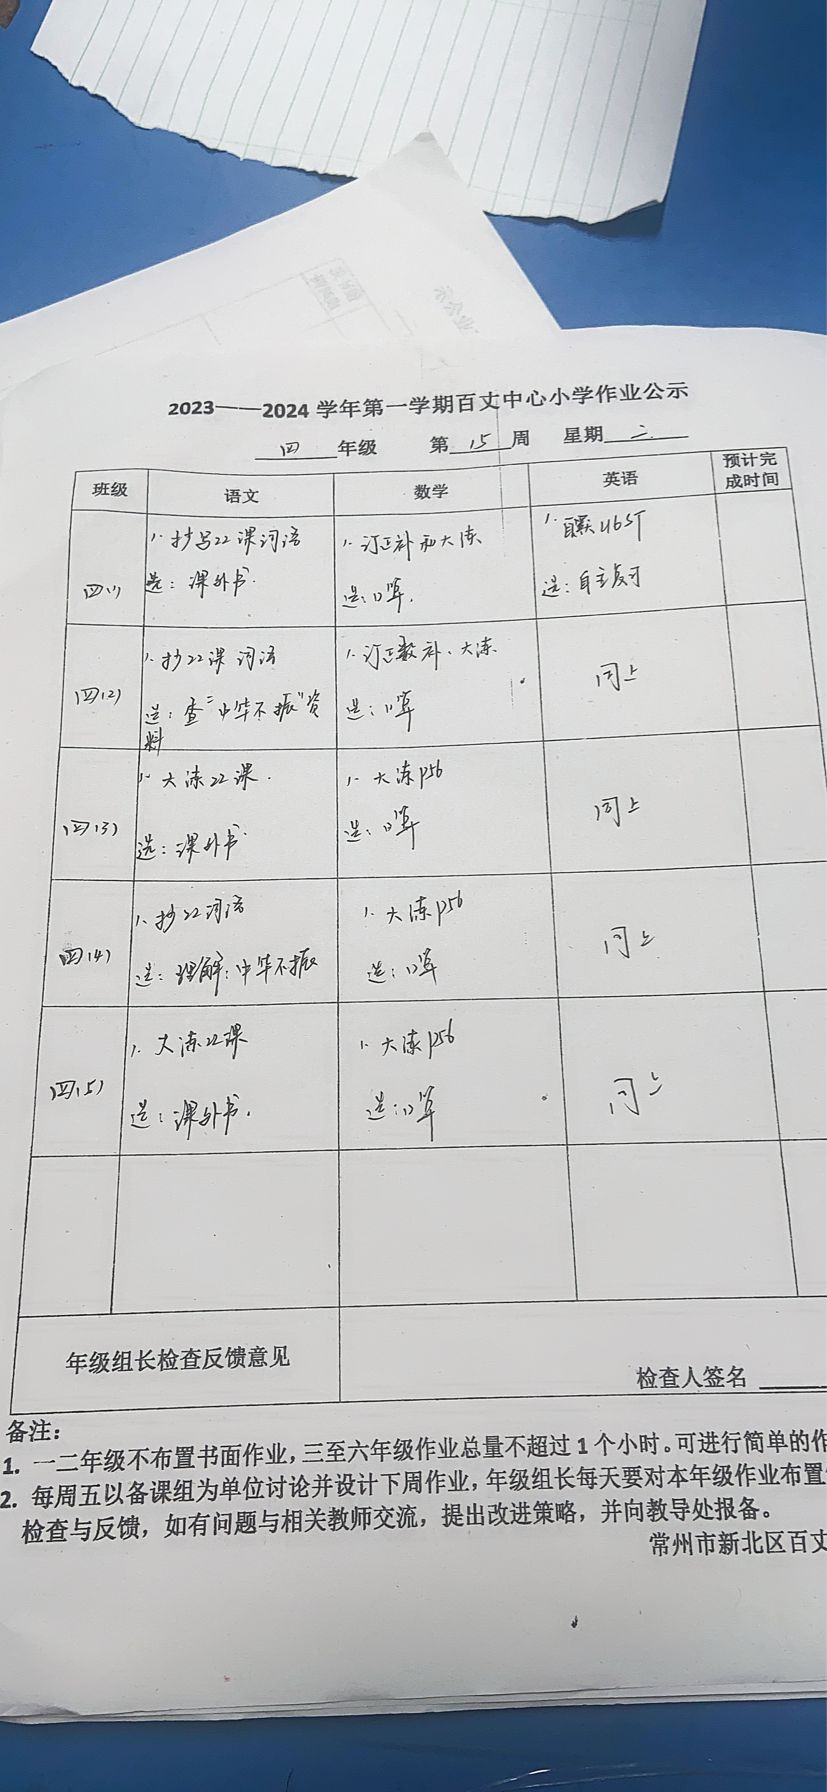 2023——2024 学年第一学期百丈中心小学作业公示
四 年级 第 15 周 星期 二
班级 语文 数学 英语 预计完成时间
四(1)
1. 抄写22课词语
选：课外书.
1. 订正补和大练
选：口算.
1. U6ST
选：自主复习
四(2)
1. 抄22课词语
选：查"中华不振"资料
1. 订正数补、大练
选：口算
同上
四(3)
1. 大练22课.
选：课外书
1. 大练P56
选：口算
同上
四(4)
1. 抄22词语
选：理解：中华不振
1. 大练P56
选：口算
同上
四(5)
1. 大练22课
选：课外书.
1. 大练P56
选：口算
同上
年级组长检查反馈意见
检查人签名
备注：
1. 一二年级不布置书面作业，三至六年级作业总量不超过 1 个小时。可进行简单的作
2. 每周五以备课组为单位讨论并设计下周作业，年级组长每天要对本年级作业布置
检查与反馈，如有问题与相关教师交流，提出改进策略，并向教导处报备。
常州市新北区百丈